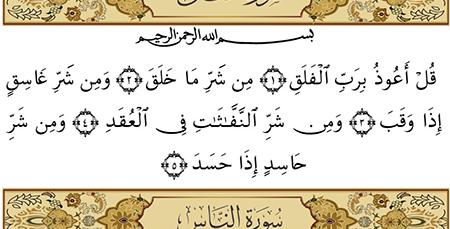 بسم الله الرحمن الرحيم
قُلْ أَعُوذُ بِرَبِّ ٱلْفَلَقِ ﴿١﴾ مِن شَرِّ مَا خَلَقَ ﴿٢﴾ وَمِن شَرِّ غَاسِقٍ
إِذَا وَقَبَ ﴿٣﴾ وَمِن شَرِّ ٱلنَّفَّـٰثَـٰتِ فِى ٱلْعُقَدِ ﴿٤﴾ وَمِن شَرِّ
حَاسِدٍ إِذَا حَسَدَ ﴿٥﴾
سُورَةُ النَّاسِ